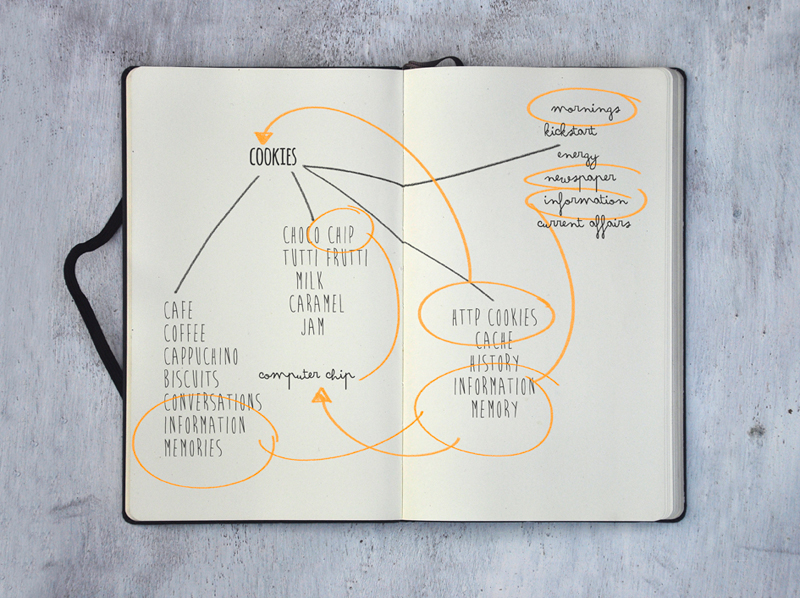 COOKIES
CHOCO CHIP
TUTTI FRUTTI
MILK
CARAMEL
JAM
CAFE
COFFEE
CAPPUCHINO
BISCUITS
CONVERSATIONS
INFORMATION
MEMORIES
computer chip
mornings
kickstart
energy
newspaper
information
current affairs
HTTP COOKIES
CACHE
HISTORY
INFORMATION
MEMORY